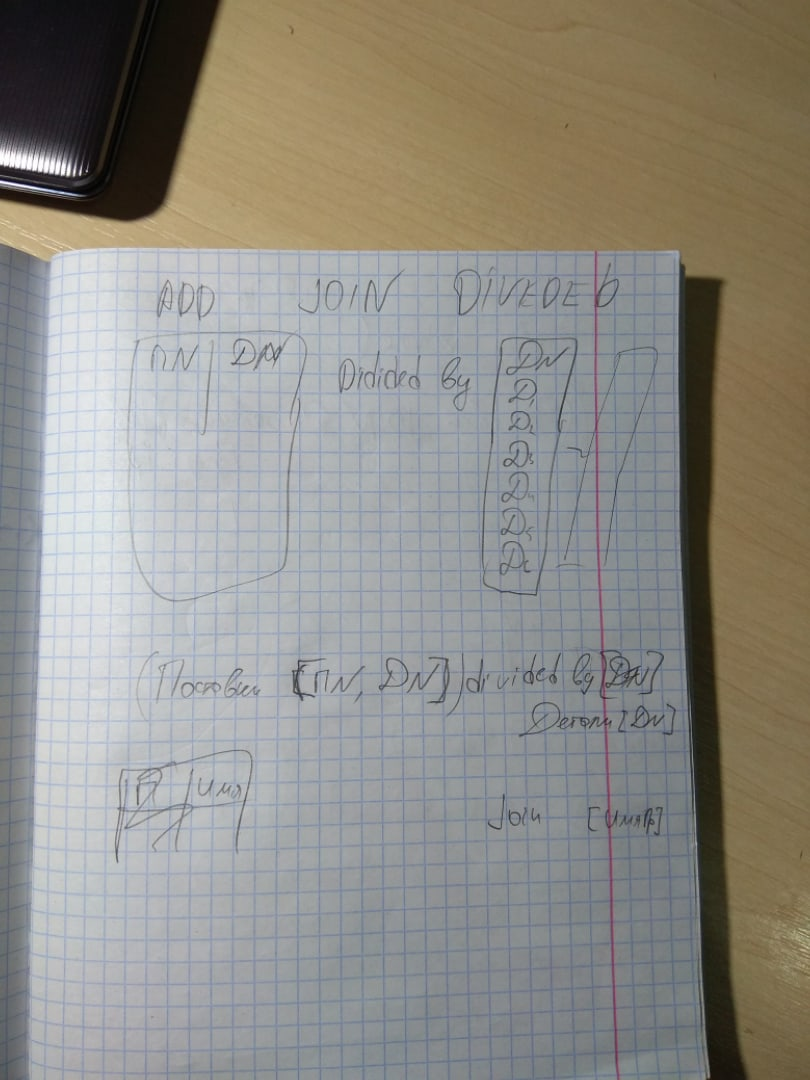 ADD JOIN DIVEDEb
ПN DN Didided by DN
D1
D2
D3
D4
D5
D6
( [ПN, DN]) divided by [DN]
Детали [DN]
П Имя
Join [ИмяП]